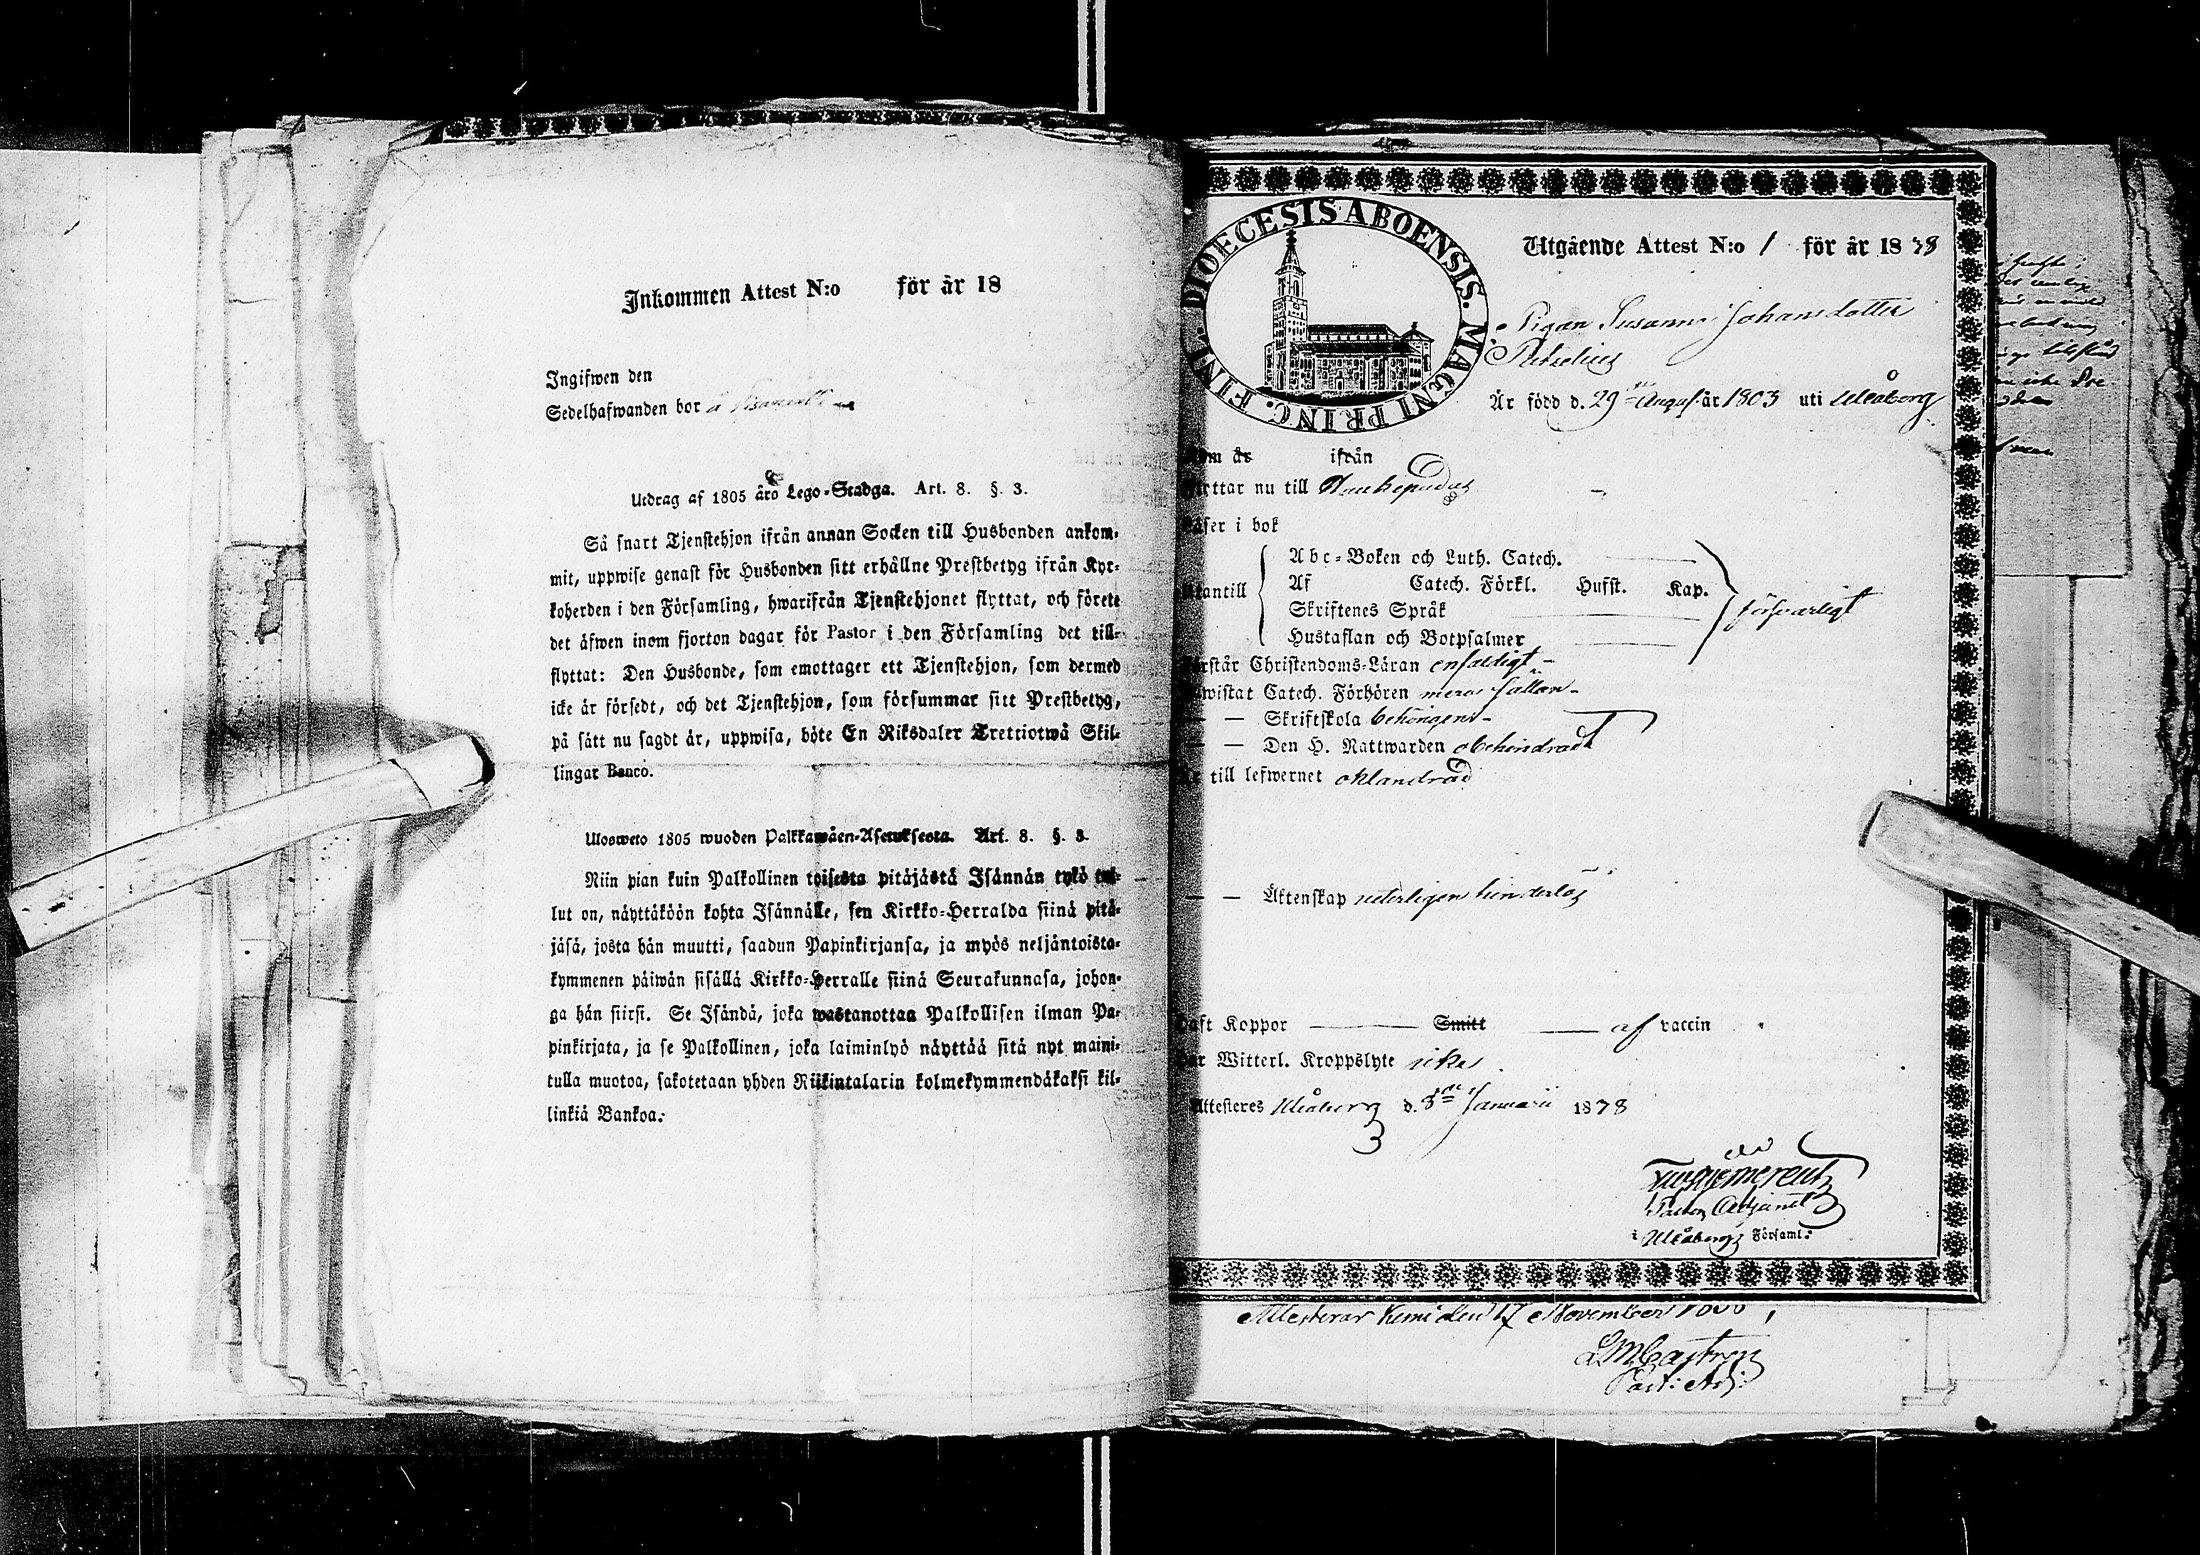 Inkommen Attest N:o för år 18
Ingifwen den
Sedelhafwanden bor å
Utdrag af 1805 års Lego-Stadga. Art. 8. §. 3.
Så snart Tjenstehjon ifrån annan Socken till Husbonden ankom-
mit, uppwise genast för Husbonden sitt erhållne Prestbetyg ifrån Kyr-
koherden i den Församling, hwarifrån Tjenstehjonet flyttat, och förete
det äfwen inom fjorton dagar för Pastor i den Församling det till-
flyttat: Den Husbonde, som emottager ett Tjenstehjon, som dermed
icke är försedt, och det Tjenstehjon, som försummar sitt Prestbetyg,
på sätt nu sagdt är, uppwisa, böte En Riksdaler Trettiotwå Skil-
lingar Banco.
Ulosweto 1805 wuoden Palkkawäen-Asetuksesta. Art. 8. §. 3.
Niin pian kuin Palkollinen toisesta pitäjästä Isännän tykö tul-
lut on, näyttäköön kohta Isännälle, sen Kirkko-Herralda siinä pitä-
jäsä, josta hän muutti, saadun Papinkirjansa, ja myös neljäntoista-
kymmenen päiwän sisällä Kirkko-Herralle siinä Seurakunnasa, johon-
ga hän siirsi. Se Isändä, joka wastanottaa Palkollisen ilman Pa-
pinkirjata, ja se Palkollinen, joka laiminlyö näyttää sitä nyt maini-
tulla muotoa, sakotetaan yhden Riikintalarin kolmekymmendäkaksi kil-
linkiä Bankoa.
DIOECESIS ABOENSIS. MAGNI PRINC. FINL.
Utgående Attest N:o 1 för år 1838
Pigan Susanna Johansdotter
Är född d. 29 Augusti år 1803 uti Uleåborg
Kom år ifrån
flyttar nu till Haukipudas
Läser i bok
Utantill
Abc-Boken och Luth. Catech.
Af Catech. Förkl. Husst. Kap.
Skriftenes Språk
Hustaflan och Botpsalmer
försvarligt
Förstår Christendoms-Läran enfaldigt
Bewistat Catech. Förhören
— — Skriftskola behörigen
— — Den H. Nattwarden obehindradt
Är till lefwernet oklandrad
— — Äktenskap veterligen hinderlös
Haft Koppor — Smitt — af vaccin
Har Witterl. Kroppslyte icke
Attesteres Uleåborg d. 8de Januarii 1838
Pastors Adjunct
i Uleåborgs Församl.
Attesterar Kemi den 17 November
L M Castren
Past: Adj: